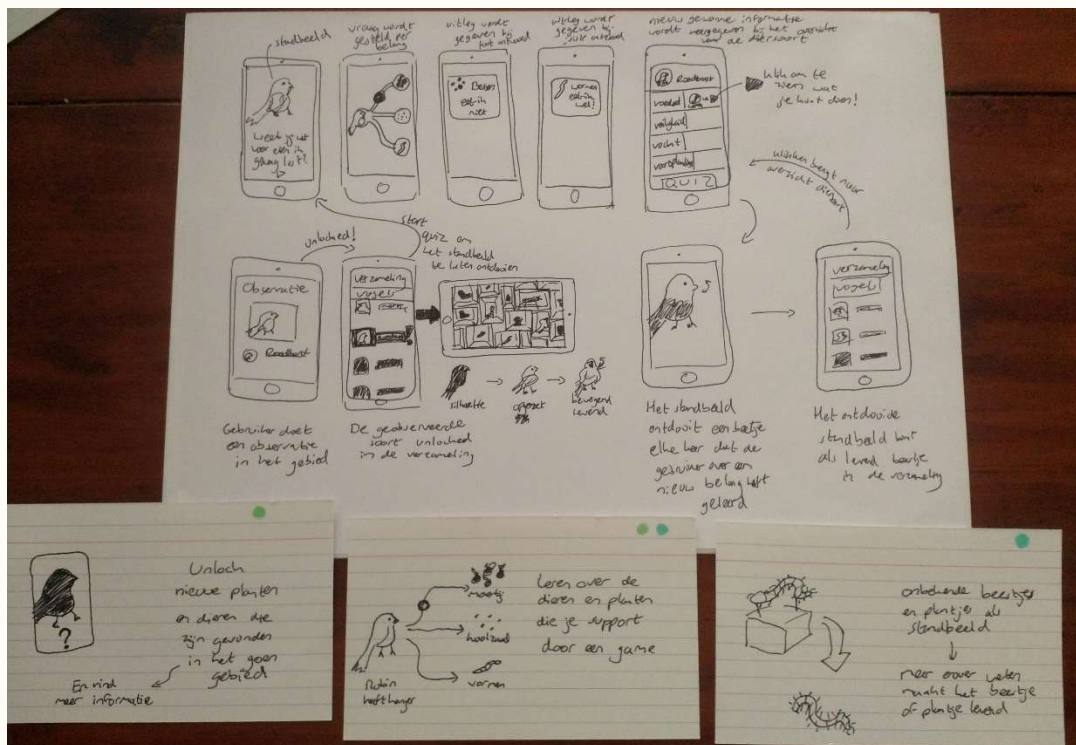 standbeeld
vraag wordt
gesteld per
belang
uitleg wordt
gegeven bij
fout antwoord
uitleg wordt
gegeven bij
juist antwoord
nieuw gewonnen informatie
wordt weergegeven bij het overzicht
van de diersoort
Weet jij wat
voor eten ik
graag lust?
Bessen
eet ik
niet
wormen
eet ik
wel!
Roodborst
voedsel
veiligheid
vocht
voortplanting
QUIZ
klik om te
zien wat
je kunt doen!
klikken brengt naar
overzicht diersoort
unlocked!
start
quiz om
het standbeeld
te laten ontdooien
Observatie
Roodborst
verzameling
vogels
silhouette
opgezet
bewegend
levend
verzameling
vogels
Gebruiker doet
een observatie
in het gebied
De geobserveerde
soort unlocked
in de verzameling
Het standbeeld
ontdooit een beetje
elke keer dat de
gebruiker over een
nieuw belang heeft
geleerd
Het ontdooide
standbeeld komt
als levend beestje
in de verzameling
?
Unlock
nieuwe planten
en dieren die
zijn gevonden
in het groen
gebied
En vind
meer informatie
Robin
heeft honger
koolzaad
wormen
leren over de
dieren en planten
die je support
door een game
onbekende beestjes
en plantjes als
standbeeld
meer over weten
maakt het beestje
of plantje levend